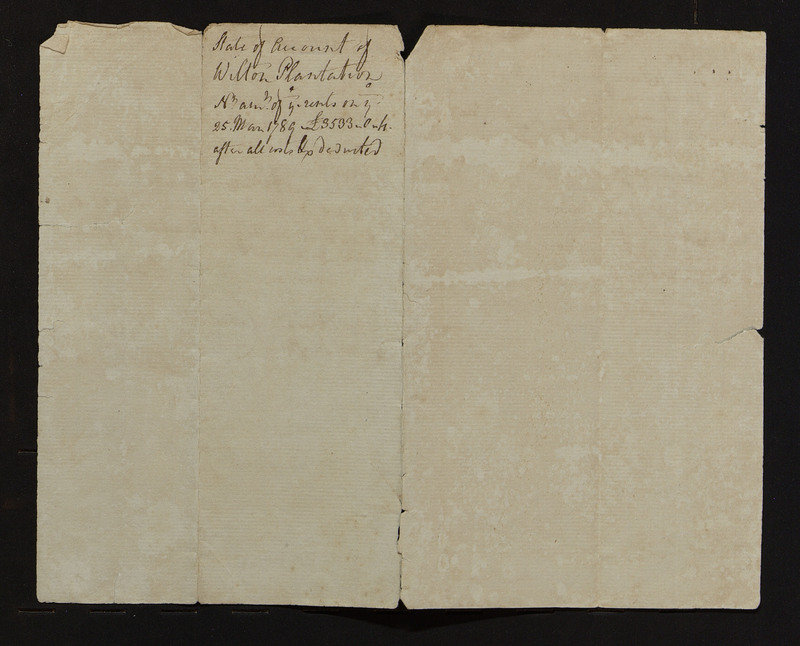 State of Account of
Wilton Plantation
Nt. amt. of ye. rents on ye.
25. Mar. 1789 £3533..0..4.
after all costs &c deducted